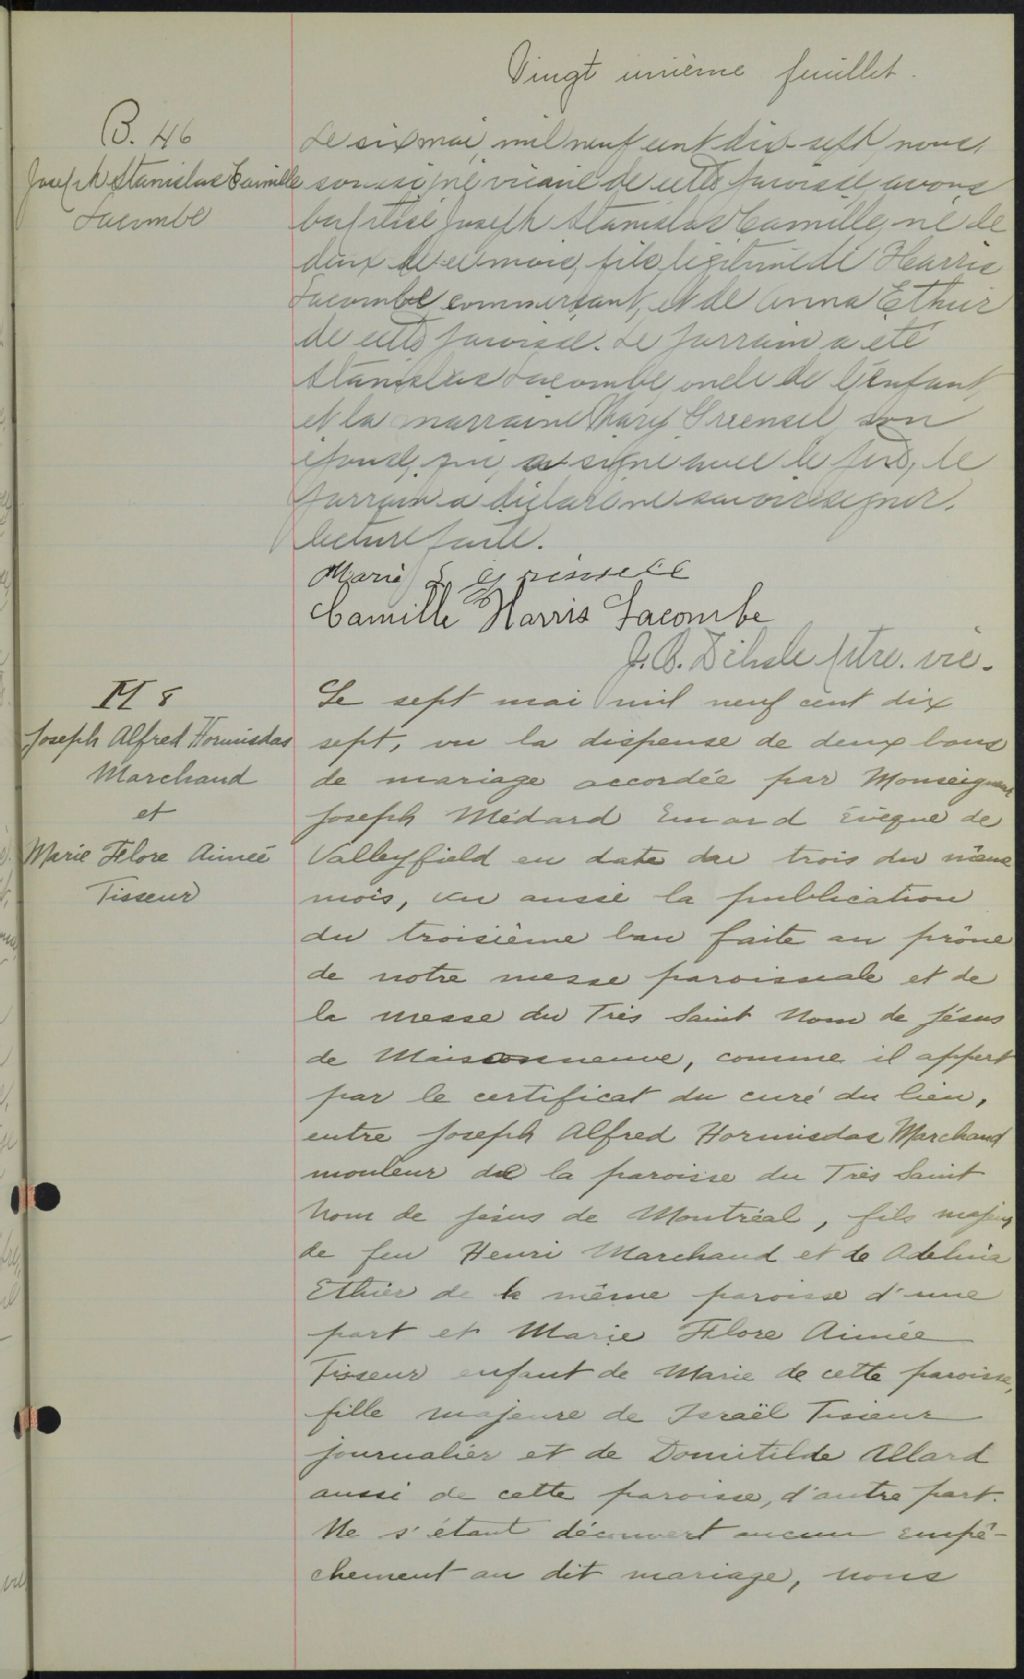 Vingt unième feuillet.
B. 46
Joseph Stanislas Camille
Lacombe
Le six mai, mil neuf cent dix-sept, nous,
soussigné vicaire de cette paroisse avons
baptisé Joseph Stanislas Camille, né le
deux de ce mois, fils légitime de Harris
Lacombe commerçant, et de Anna Ethier
de cette paroisse. Le parrain a été
Stanislas Lacombe, oncle de l'enfant,
et la marraine Mary Greensel son
épouse, qui a signé avec le père, le
parrain a déclaré ne savoir signer.
Lecture faite.
Marie Grinsell
Camille Harris Lacombe
J. B. Delisle ptre. vic.
M 8
Joseph Alfred Hormisdas
Marchand
et
Marie Flore Aimée
Tisseur
Le sept mai mil neuf cent dix
sept, vu la dispense de deux bans
de mariage accordée par Monseigneur
Joseph Médard Emard Evêque de
Valleyfield en date du trois du même
mois, vu aussi la publication
du troisième ban faite au prône
de notre messe paroissiale et de
la messe du Très Saint Nom de Jésus
de Maisonneuve, comme il appert
par le certificat du curé du lieu,
entre Joseph Alfred Hormisdas Marchand
mouleur de la paroisse du Très Saint
Nom de Jésus de Montréal, fils majeur
de feu Henri Marchand et de Adelina
Ethier de la même paroisse d'une
part et Marie Flore Aimée
Tisseur enfant de Marie de cette paroisse,
fille majeure de Israël Tisseur
journalier et de Domitilde Allard
aussi de cette paroisse, d'autre part.
Ne s'étant découvert aucun empê-
chement au dit mariage, nous